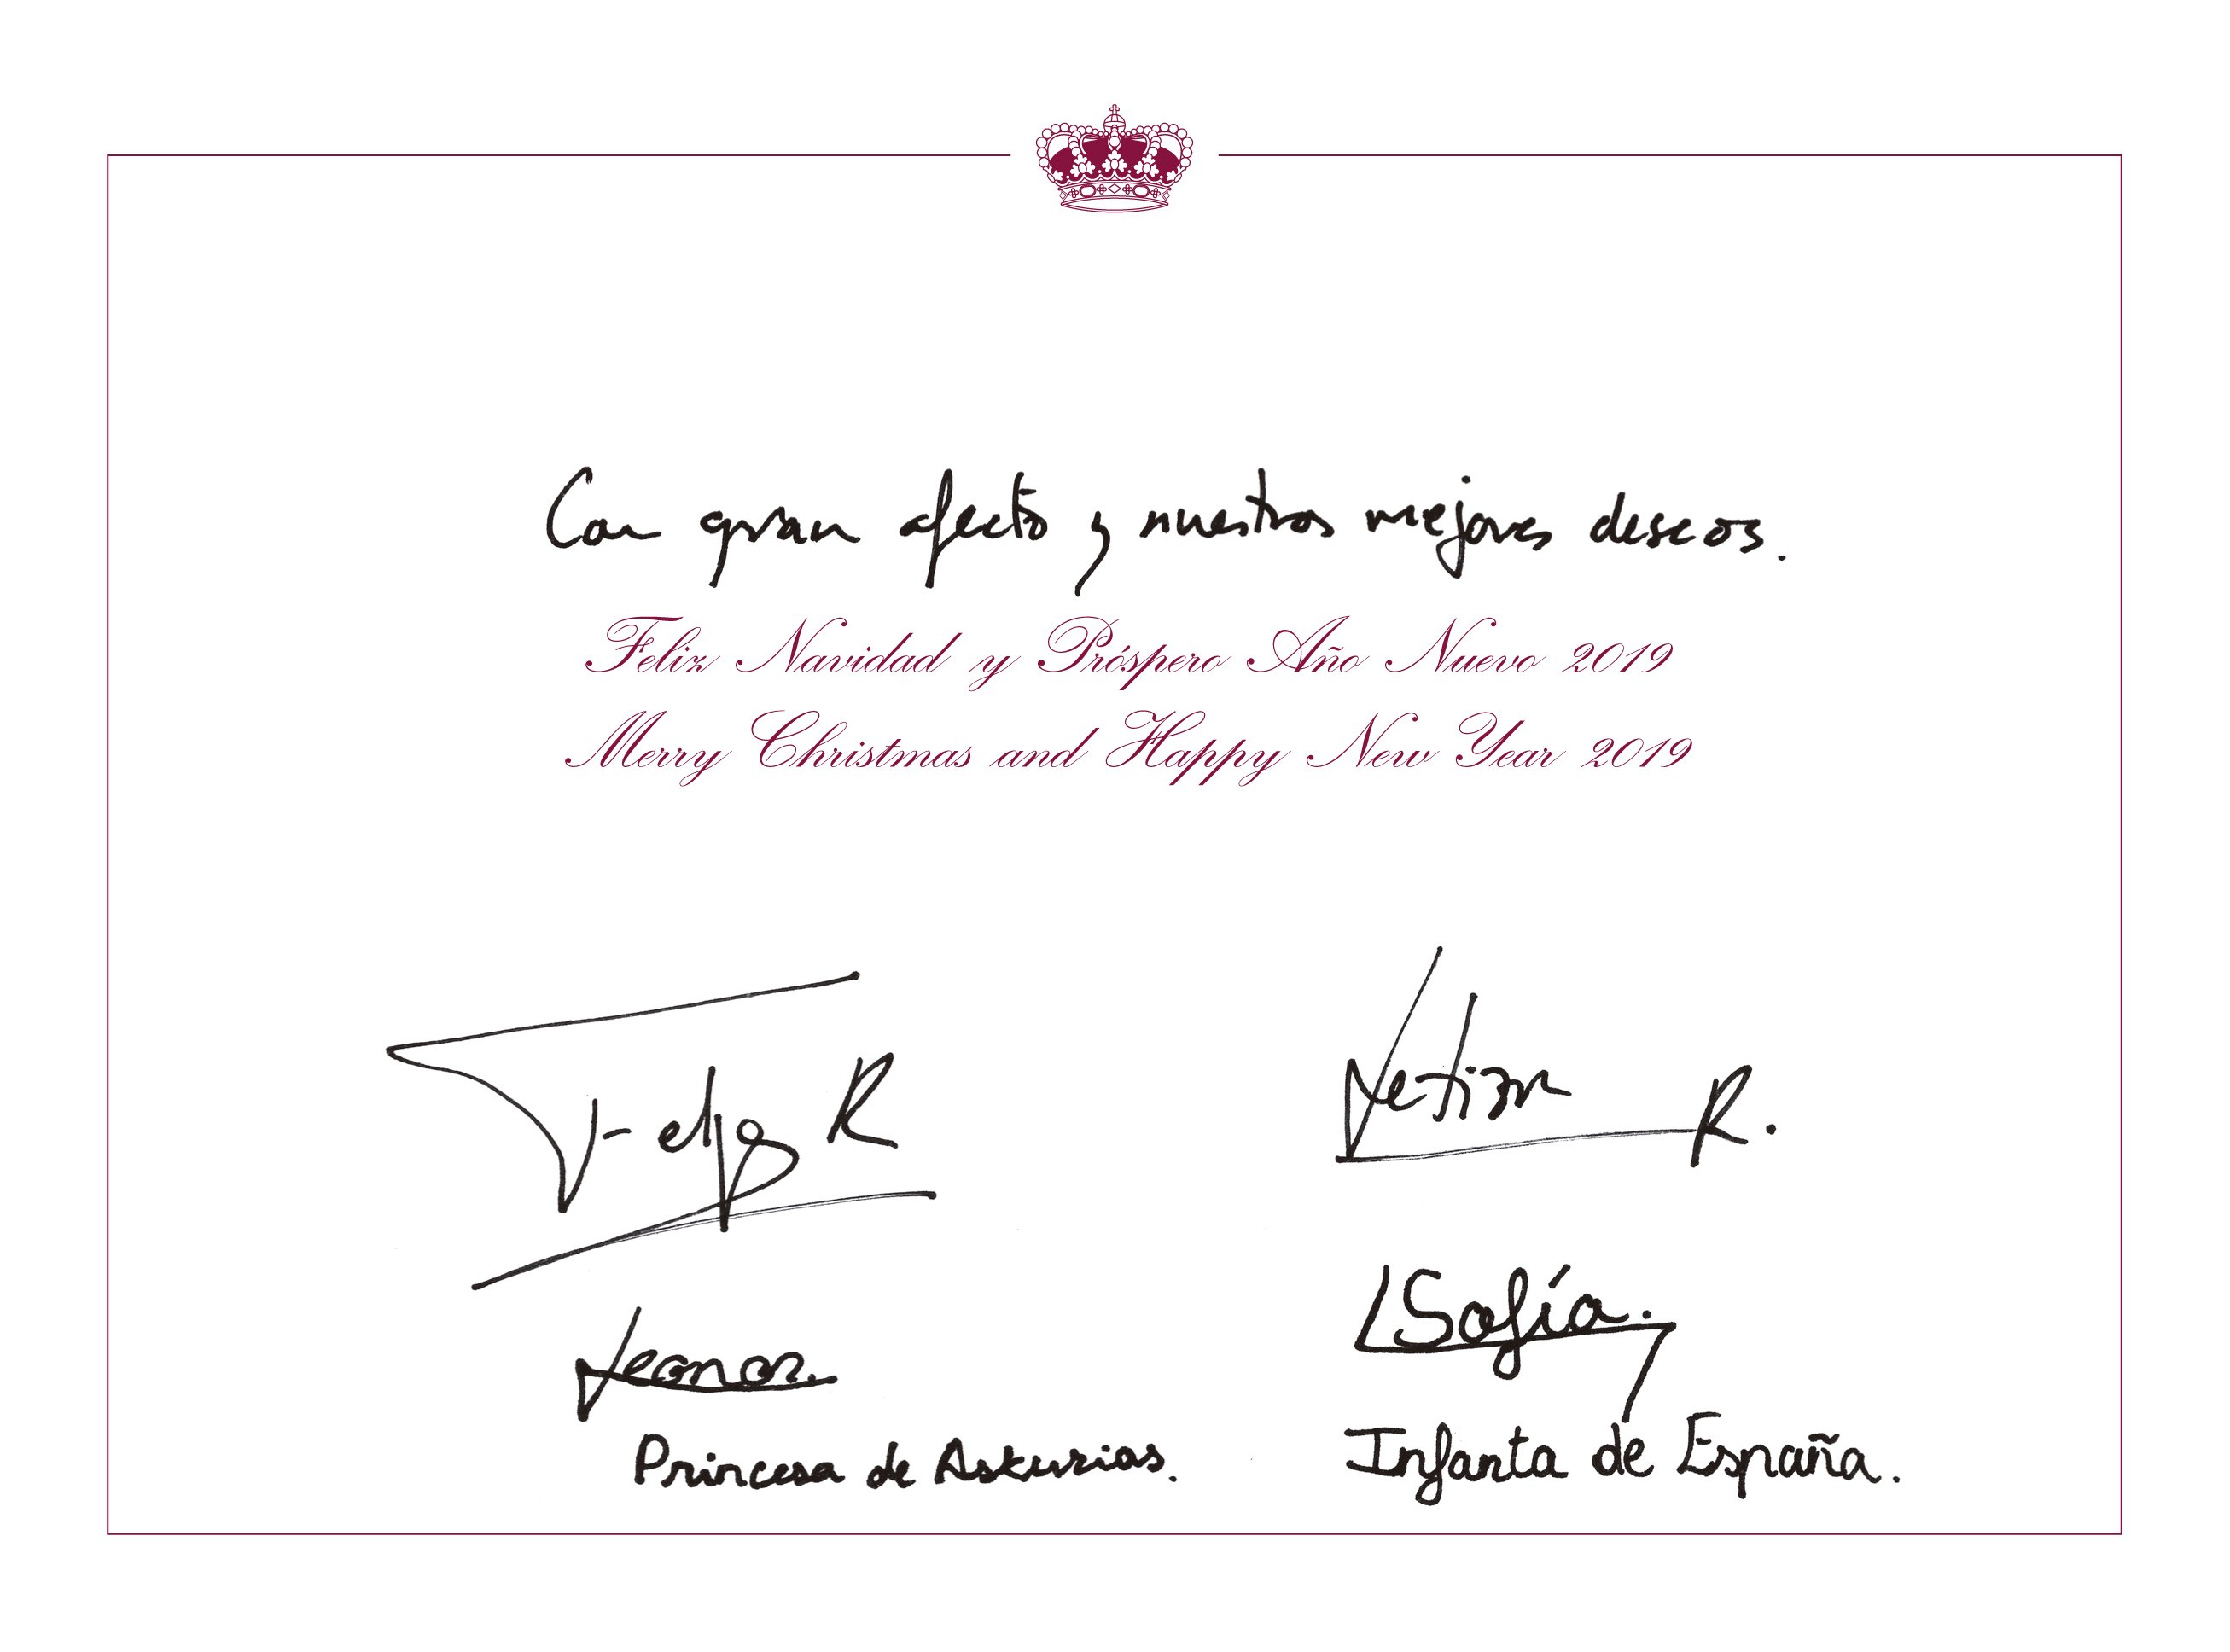 Con gran afecto y nuestros mejores deseos.
Feliz Navidad y Próspero Año Nuevo 2019
Merry Christmas and Happy New Year 2019
Felipe R Letizia R.
Leonor. Sofía.
Princesa de Asturias. Infanta de España.